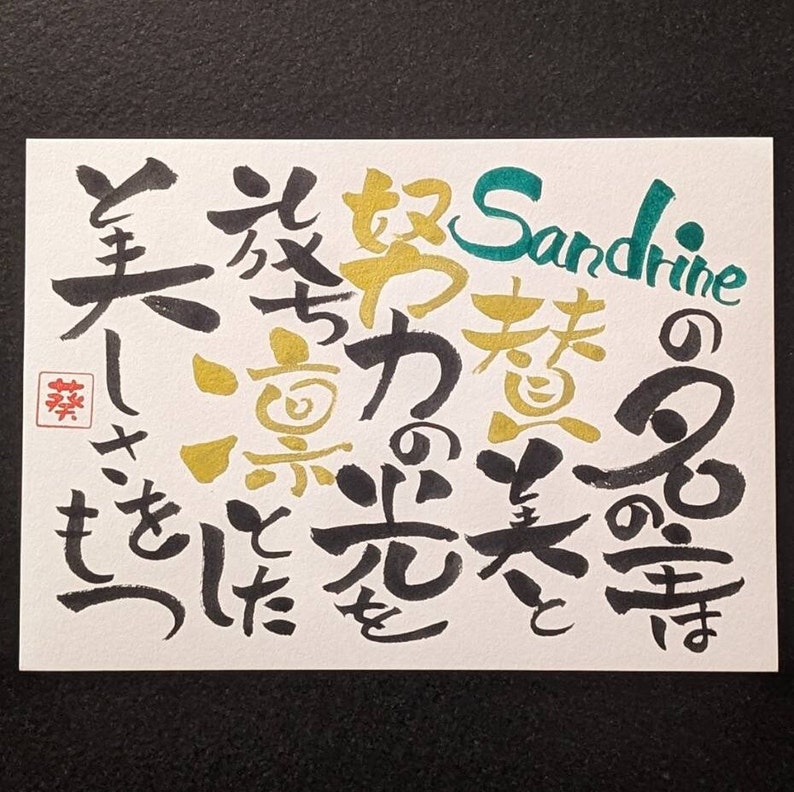 Sandrine
の名の主は
賛美と
努力の光を
放ち凛とした
美しさをもつ
葵